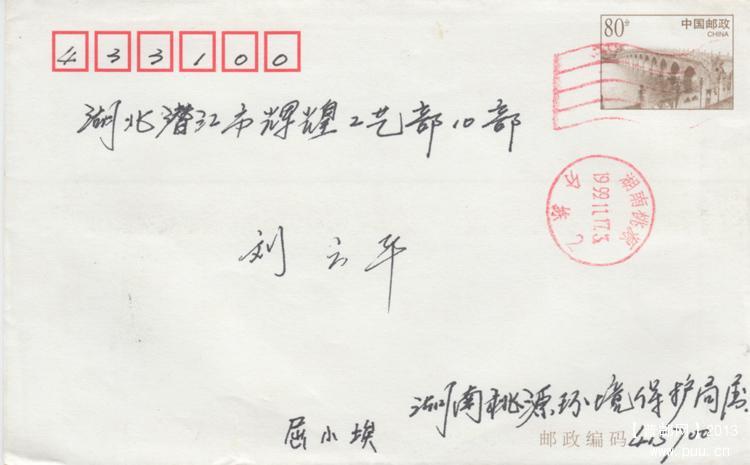 433100
80分
中国邮政
CHINA
湖北潜江市辉煌工艺部10部
湖南桃源
1999.11.17.
刘云华
湖南桃源环境保护局
屈小
邮政编码
2013
www.puu.cn